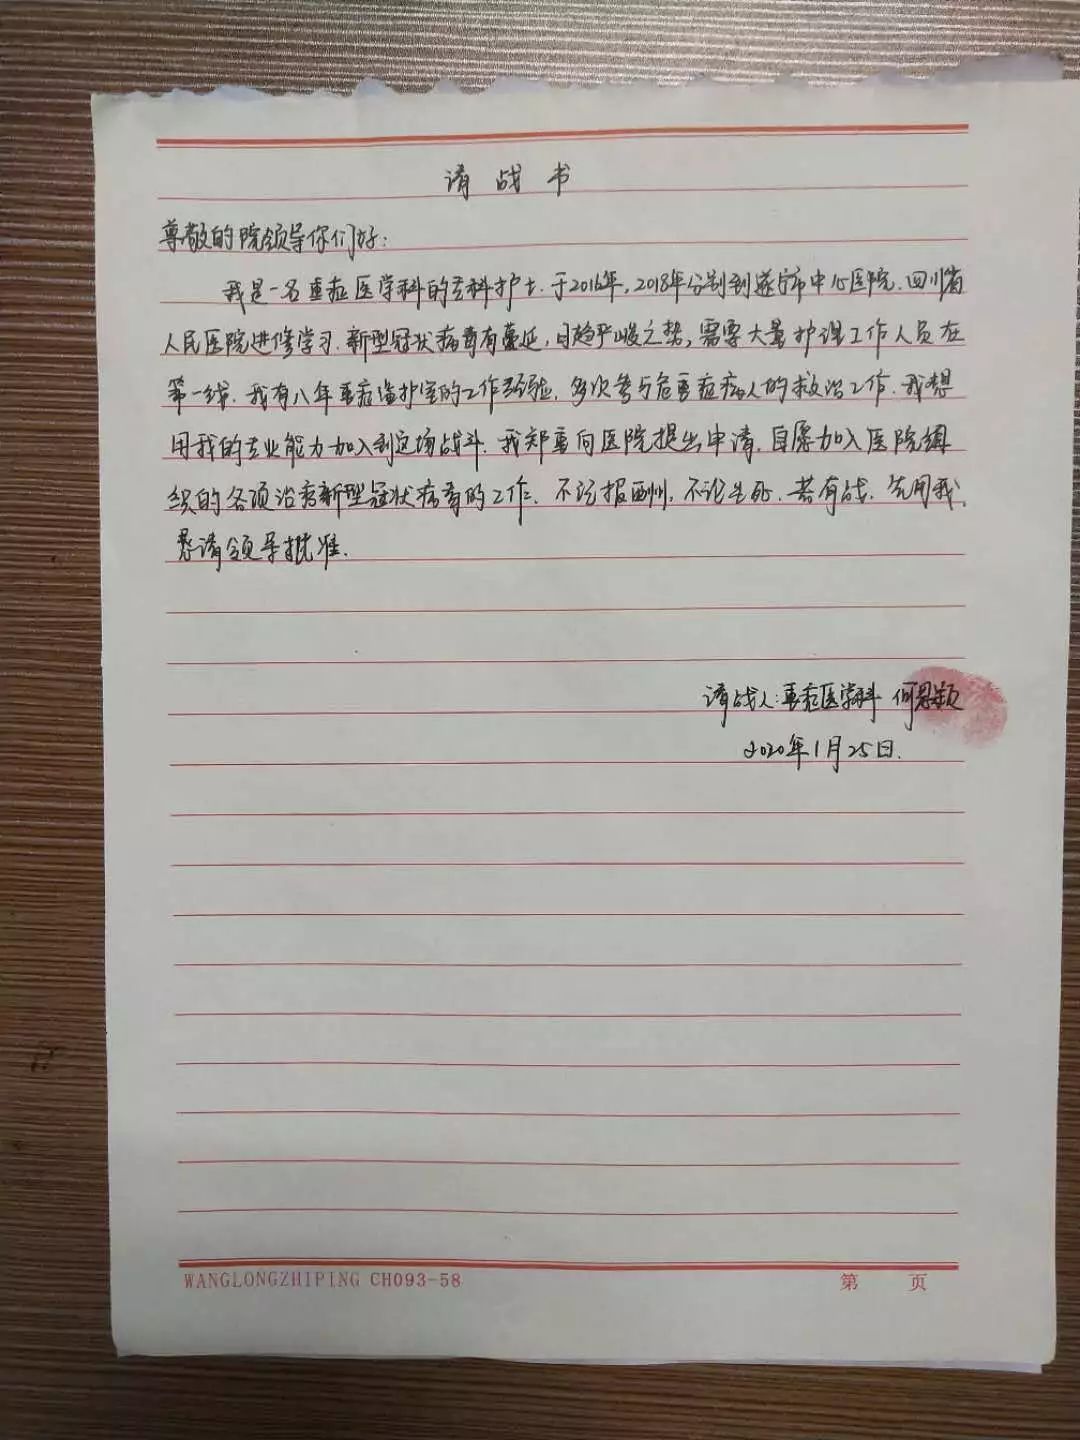 请战书
尊敬的院领导你们好：
我是一名重症医学科的专科护士.于2016年,2018年分别到遂宁市中心医院.四川省
人民医院进修学习.新型冠状病毒有蔓延,日趋严峻之势,需要大量护理工作人员在
第一线.我有八年重症监护室的工作经验,多次参与危重症病人的救治工作.我想
用我的专业能力加入到这场战斗.我郑重向医院提出申请.自愿加入医院组
织的各项治疗新型冠状病毒的工作.不论报酬州,不论生死.若有战.先用我.
恳请领导批准.
请战人:重症医学科 何
2020年1月25日.
WANGLONGZHIPING CH093-58
第 页